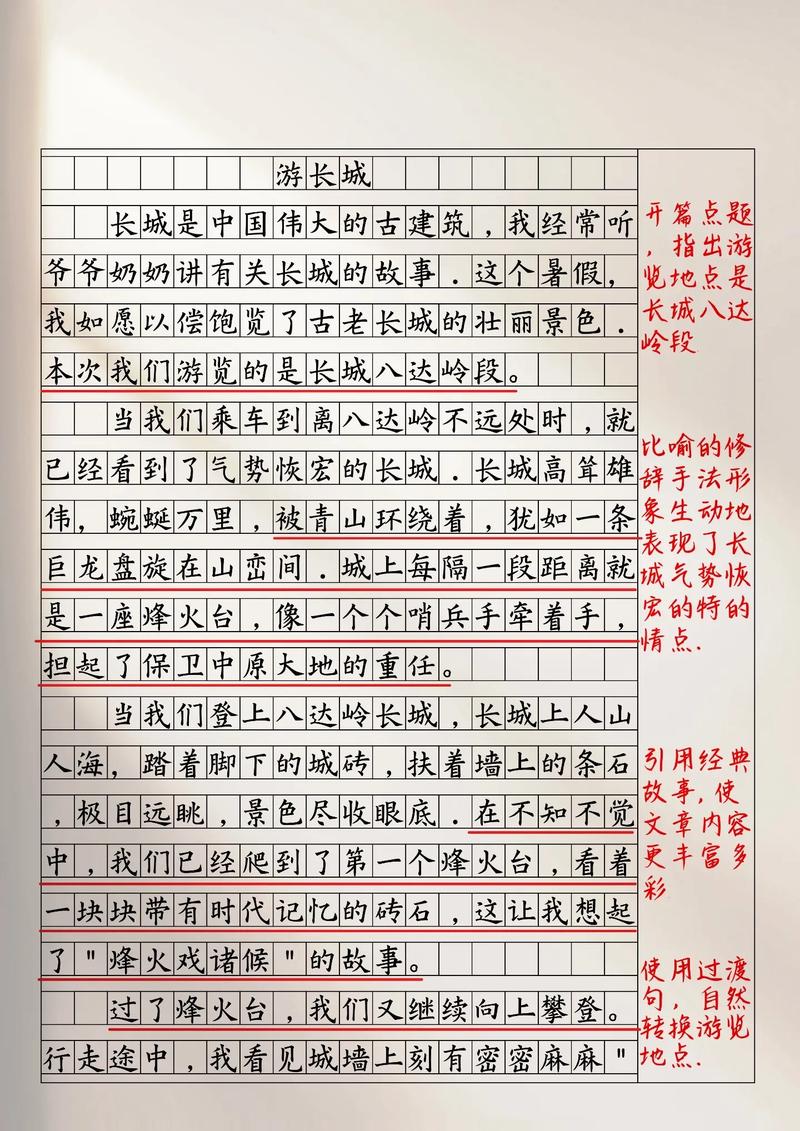 游长城
长城是中国伟大的古建筑，我经常听
爷爷奶奶讲有关长城的故事.这个暑假，
我如愿以偿饱览了古老长城的壮丽景色.
本次我们游览的是长城八达岭段。
当我们乘车到离八达岭不远处时，就
已经看到了气势恢宏的长城.长城高耸雄
伟，蜿蜒万里，被青山环绕着，犹如一条
巨龙盘旋在山峦间.城上每隔一段距离就
是一座烽火台，像一个个哨兵手牵着手，
担起了保卫中原大地的重任。
当我们登上八达岭长城，长城上人山
人海，踏着脚下的城砖，扶着墙上的条石
，极目远眺，景色尽收眼底.在不知不觉
中，我们已经爬到了第一个烽火台，看着
一块块带有时代记忆的砖石，这让我想起
了"烽火戏诸候"的故事。
过了烽火台，我们又继续向上攀登。
行走途中，我看见城墙上刻有密密麻麻"
开篇点题
，指出游
览地点是
长城八达
岭段
比喻的修
辞手法形
象生动地
表现了长
城气势恢
宏的特的
情点.
引用经典
故事，使
文章内容
更丰富多
彩
使用过渡
句，自然
转换游览
地点.